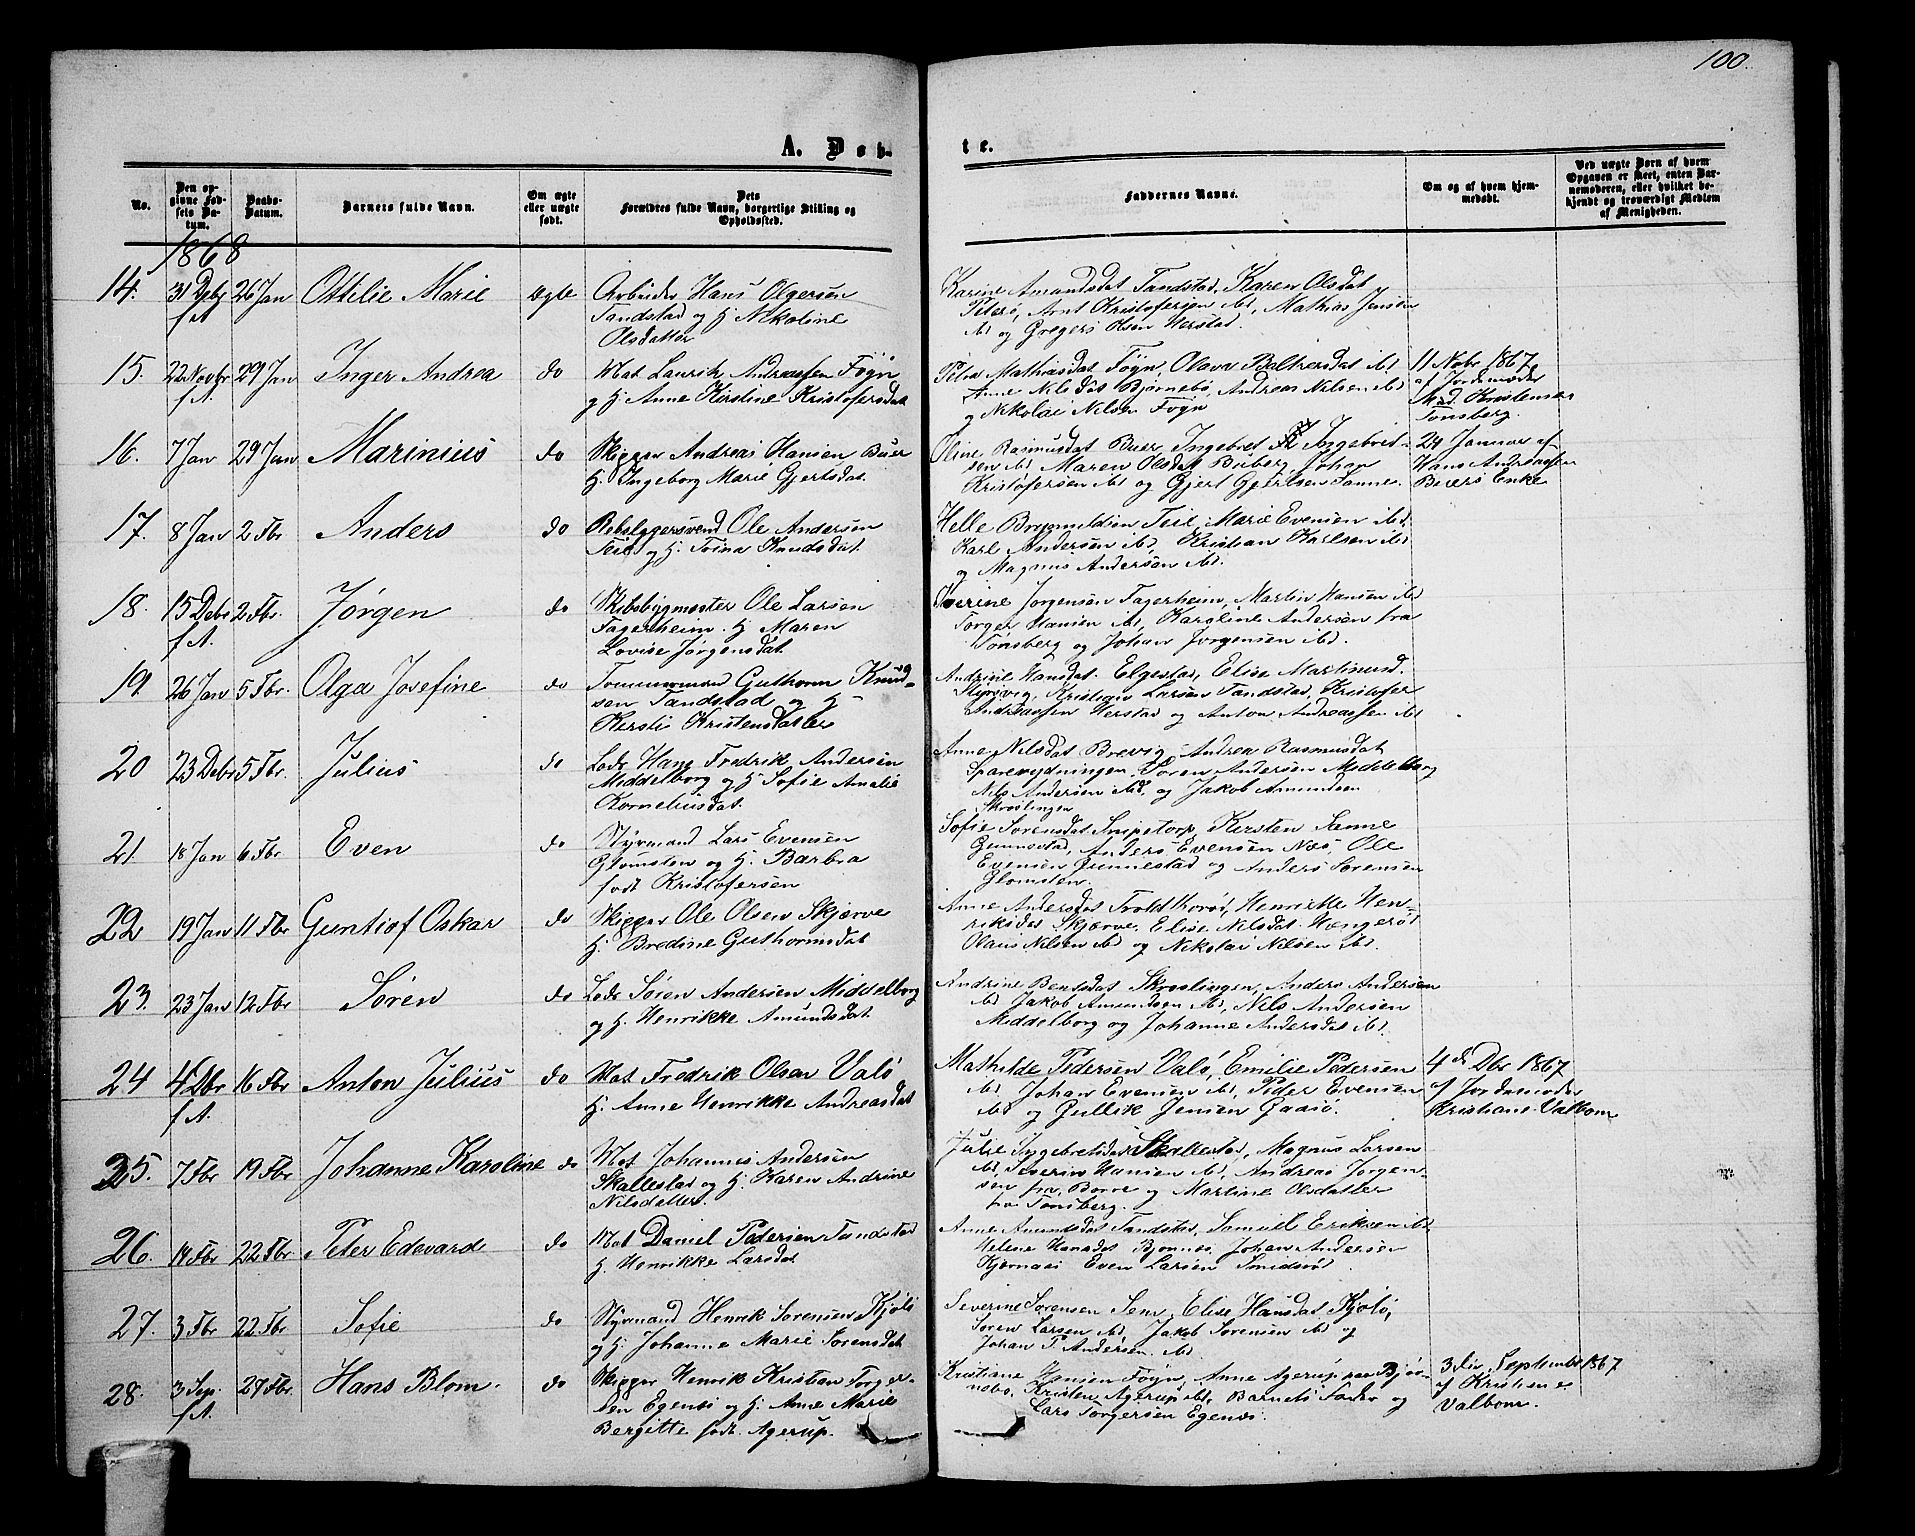 100.
A. Døb-
te.
No.
Den op-
givne Fød-
sels Da-
tum.
Daabs-
Datum.
Barnets fulde Navn.
Om ægte
eller uægte
født.
Dets
Forældres fulde Navn, borgerlige Stilling og
Opholdssted.
Faddernes Navne.
Om og af hvem hjem-
medøbt.
Ved uægte Børn af hvem
Opgaven er skeet, enten Bar-
nemoderen, eller hvilket be-
kjendt og troværdigt Medlem
af Menigheden.
1868
14. 31 Debr f.A. 26 Jan Ottilie Marie ægte
Arbeider Hans Olgersen
Tandstad og H. Nikoline
Olsdatter
Karine Amundsdat Tandstad, Karen Olsdat
Peterø, Arnt Kristofersen ibd, Mathias Jensen
ibd og Gregers Olsen Herstad.
15. 22 Novbr f.A. 29 Jan Inger Andrea do
Mat Lauritz Andreassen Føgn
og H. Anne Kirstine Kristofersdat
Petra Mathiasdat Føgn, Olava Baltzersdat ibd
Anne Nilsdat Bjørnebø, Andreas Nilsen ibd
og Nikolai Nilsen Føgn
11 Nobr 1867
af Jordemoder
Mad. Kristensen
Tønsberg.
16. 7 Jan 29 Jan Marinius do
Skipper Andreas Hansen Buer
H. Ingeborg Marie Gjertsdat.
Oline Rasmusdat Buer, Ingebret Ingebret-
sen ibd, Maren Olsdat Buberg, Johan
Kristofersen ibd og Gjert Gjertsen Sanne.
24 Januar af
Hans Andreassen
Buers Enke
17. 8 Jan 2 Fbr Anders do
Rebslagersvend Ole Andersen
Teie og H. Trina Knudsdat.
Helle Brynnildsen Teie, Marie Evensen ibd,
Karl Andersen ibd, Kristian Karlsen ibd
og Magnus Andersen ibd.
18. 15 Debr f.A. 2 Fbr. Jørgen do
Skibsbygmester Ole Larsen
Fagerheim. H Maren
Lovise Jørgensdat.
Jørgensen Fagerheim, Martin Hansen ibd
Hansen ibd, Karoline Andersen fra
Tønsberg og Johan Jørgensen ibd.
19. 26 Jan 5 Fbr. Olga Josefine do
Tømmermand Guthorm Knud-
sen Tandstad og H
Kirsti Kristensdatter
Hansdat. Elgestad, Elise Martinusd.
Kristian Larsen Tandstad, Kristofer
Andreassen Herstad og Anton Andreassen ibd
20 23 Debr 5 Fbr. Julius do
Lods Hans Fredrik Andersen
Middelborg og H Sofie Amalie
Korneliusdat.
Anne Nilsdat Brevig, Andrea Rasmusdat
Søren Andersen Middelborg
Nils Andersen ibd, og Jakob Amundsen
Skrøslingen
21. 18 Jan 6 Fbr Even do
Styrmand Lars Evensen
Glomsten og H. Barbra
født Kristofersen
Sofie Sørensdat Snipetorp, Kirsten Sanne
Gunnestad, Anders Evensen Næs, Ole
Evensen Gunnestad og Anders Sørensen
Glomsten.
22 19 Jan 11 Fbr Guntiof Oskar do
Skipper Ole Olsen Skjærve
H. Bredine Guthormsdat
Anne Andersdat Troldthorøt, Henriette Hen-
riksdat Skjærve, Elise Nilsdat. Hængerøt
Olaus Nilsen ibd og Nikolai Nilsen ibd.
23. 23 Jan 12 Fbr Søren do
Lods Søren Andersen Middelborg
og H. Henrikke Amundsdat
Andrine Bentsdat Skroslingen, Anders Andersen
ibd Jakob Amundsen ibd, Nils Andersen
Middelborg og Johanne Andersdat ibd.
24 4 Dbr f.A. 16 Fbr Anton Julius do
Mat Fredrik Olsen Valø
H. Anne Henrikke Andreasdat
Mathilde Pedersen Valø, Emilie Pedersen
ibd, Johan Evensen ibd, Peder Evensen
ibd og Gullik Jensen Gaasø.
4de Dbr 1867
af Jordemoder
Kristiane Valbom
25. 7 Fbr 19 Fbr Johanne Karoline do
Mat Johannes Andersen
Skallestad og H. Karen Andrine
Nilsdatter.
Julie Ingebretsdat Skallestad, Magnus Larsen
ibd Severin Hansen ibd, Andreas Jørgen-
sen fra Borre og Martine Olsdatter
fra Tønsberg.
26. 14 Fbr 22 Fbr Peter Edevard do
Mat Daniel Pedersen Tandstad
H. Henrikke Larsdat
Anne Amundsdat Tandstad, Samuel Eriksen ibd
Helene Hansdat Bjønnes, Johan Andersen
Kjærnaasi Even Larsen Smidsrød
27. 3 Fbr 22 Fbr Sofie do
Styrmand Henrik Sørensen Kjøle
og H. Johanne Marie Sørensdat
Severine Sørensen Sem, Elise Hansdat Kjølø,
Søren Larsen ibd, Jakob Sørensen ibd og
Johan T. Andersen ibd.
28. 3 Sep. f.A. 27 Fbr. Hans Blom. do
Skipper Henrik Kristian Torger-
sen Egenes og H. Anne Marie
Bergitte født. Agerup.
Kristiane Hansen Føgn, Anne Agerup paa Bjør-
nebo, Kristen Agerup ibd, Barnets Fader og
Lars Torgersen Egenes.
3die September 1867
af Kristiane
Valbom.